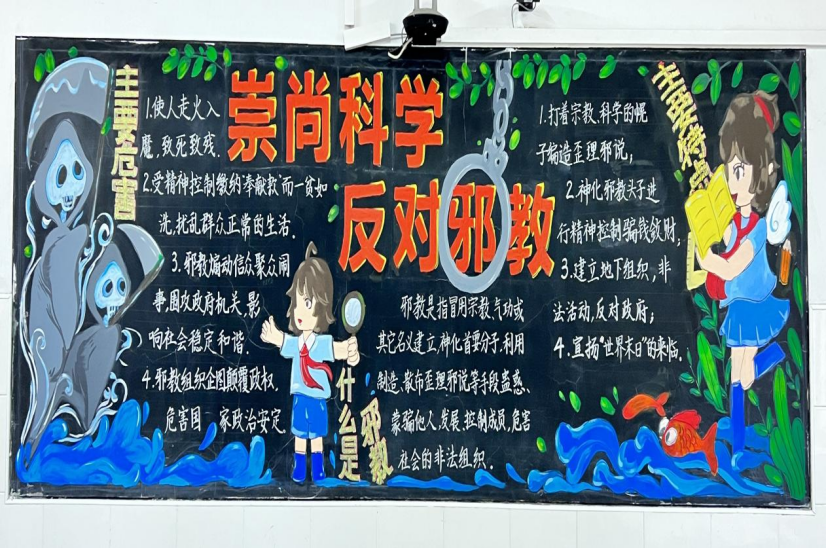 崇尚科学
反对邪教
主要危害
1.使人走火入
魔,致死致残.
2.受精神控制缴纳“奉献款”而一贫如
洗,扰乱群众正常的生活.
3.邪教煽动信众聚众闹
事,围攻政府机关,影
响社会稳定和谐.
4.邪教组织企图颠覆政权.
危害国 家政治安定
什么是
邪教
邪教是指冒用宗教,气功或
其它名义建立,神化首要分子.利用
制造、散布歪理邪说等手段蛊惑、
蒙骗他人,发展、控制成员,危害
社会的非法组织.
主要特点
1.打着宗教、科学的幌
子编造歪理邪说;
2.神化邪教头子进
行精神控制骗钱敛财;
3.建立地下组织,非
法活动,反对政府;
4.宣扬“世界末日”的来临.